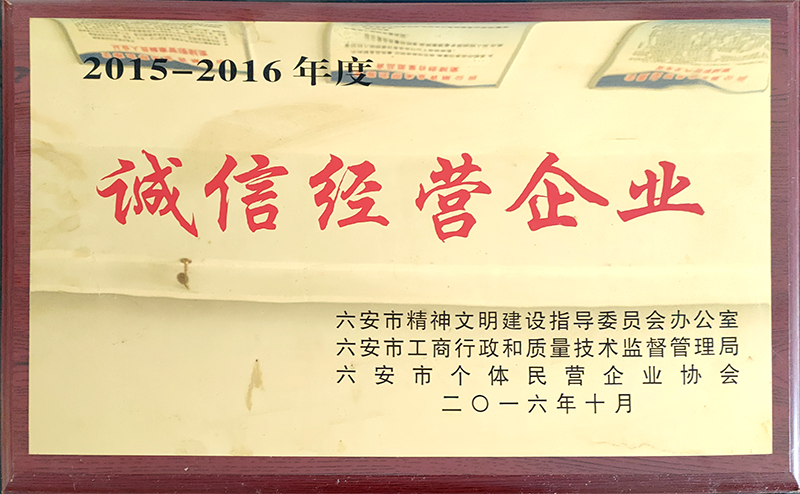 2015-2016 年度
诚信经营企业
六安市精神文明建设指导委员会办公室
六安市工商行政和质量技术监督管理局
六安市个体民营企业协会
二〇一六年十月